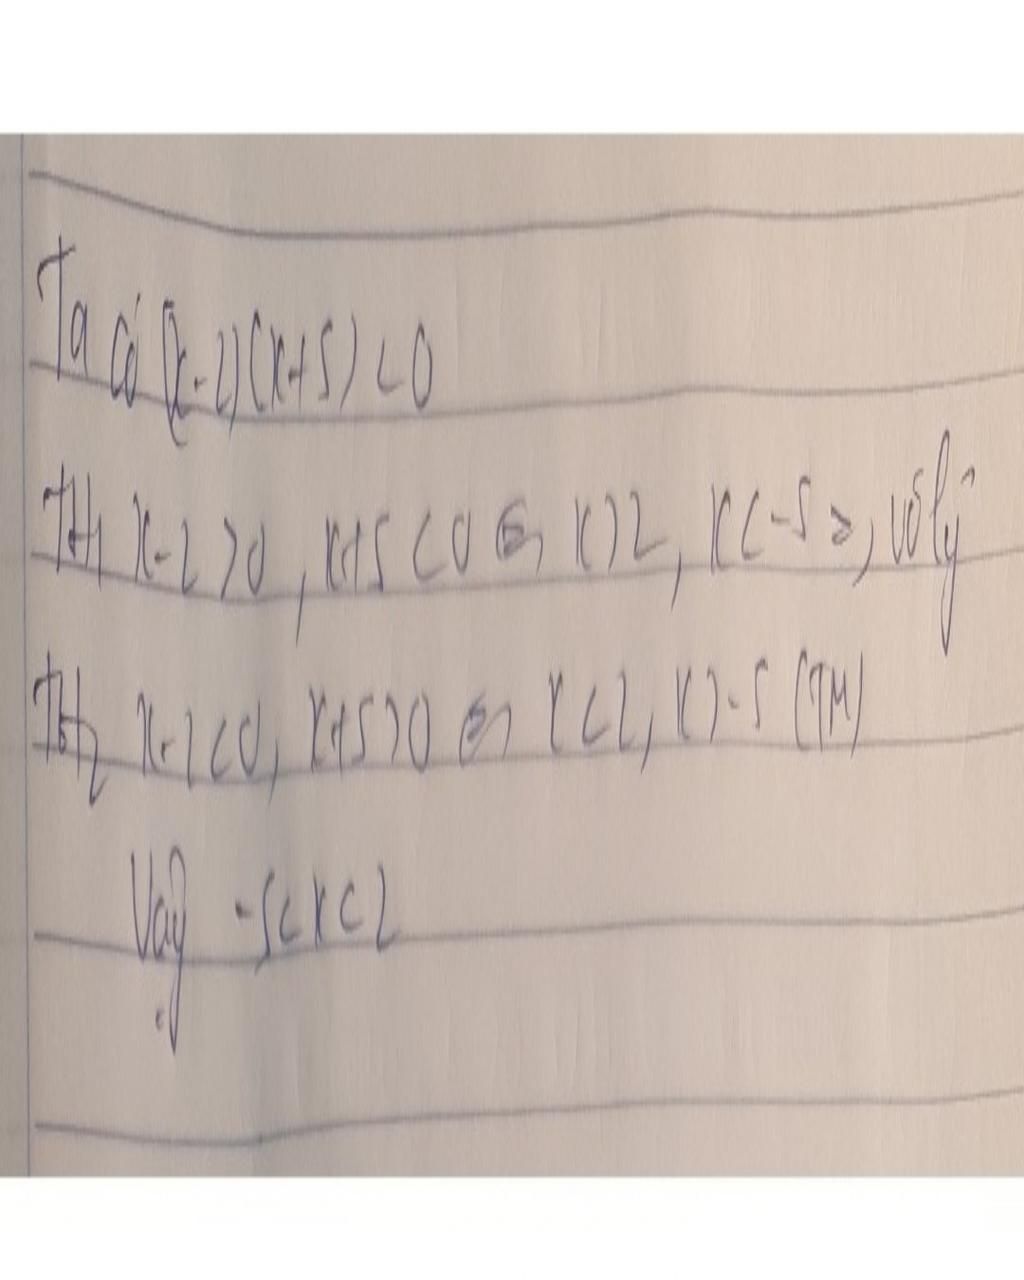 Ta có (x-2)(x+5) < 0
TH1 x-2 > 0, x+5 < 0 ⇔ x > 2, x < -5 ⇒, vô lý
TH2 x-2 < 0, x+5 > 0 ⇔ x < 2, x > -5 (TM)
Vậy -5 < x < 2